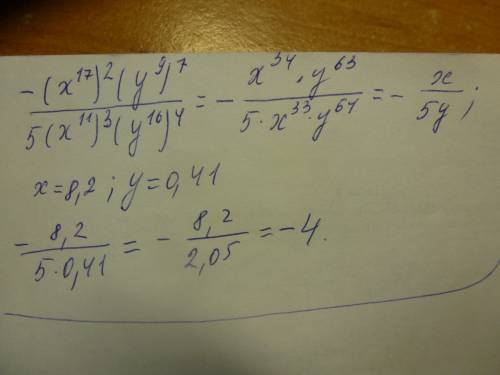 -(x¹⁷)²(y⁹)⁷/5(x¹¹)³(y¹⁶)⁴ = - x³⁴·y⁶³/5·x³³·y⁶⁴ = - x/5y;
x=8,2; y=0,41
- 8,2/5·0,41 = - 8,2/2,05 = -4.